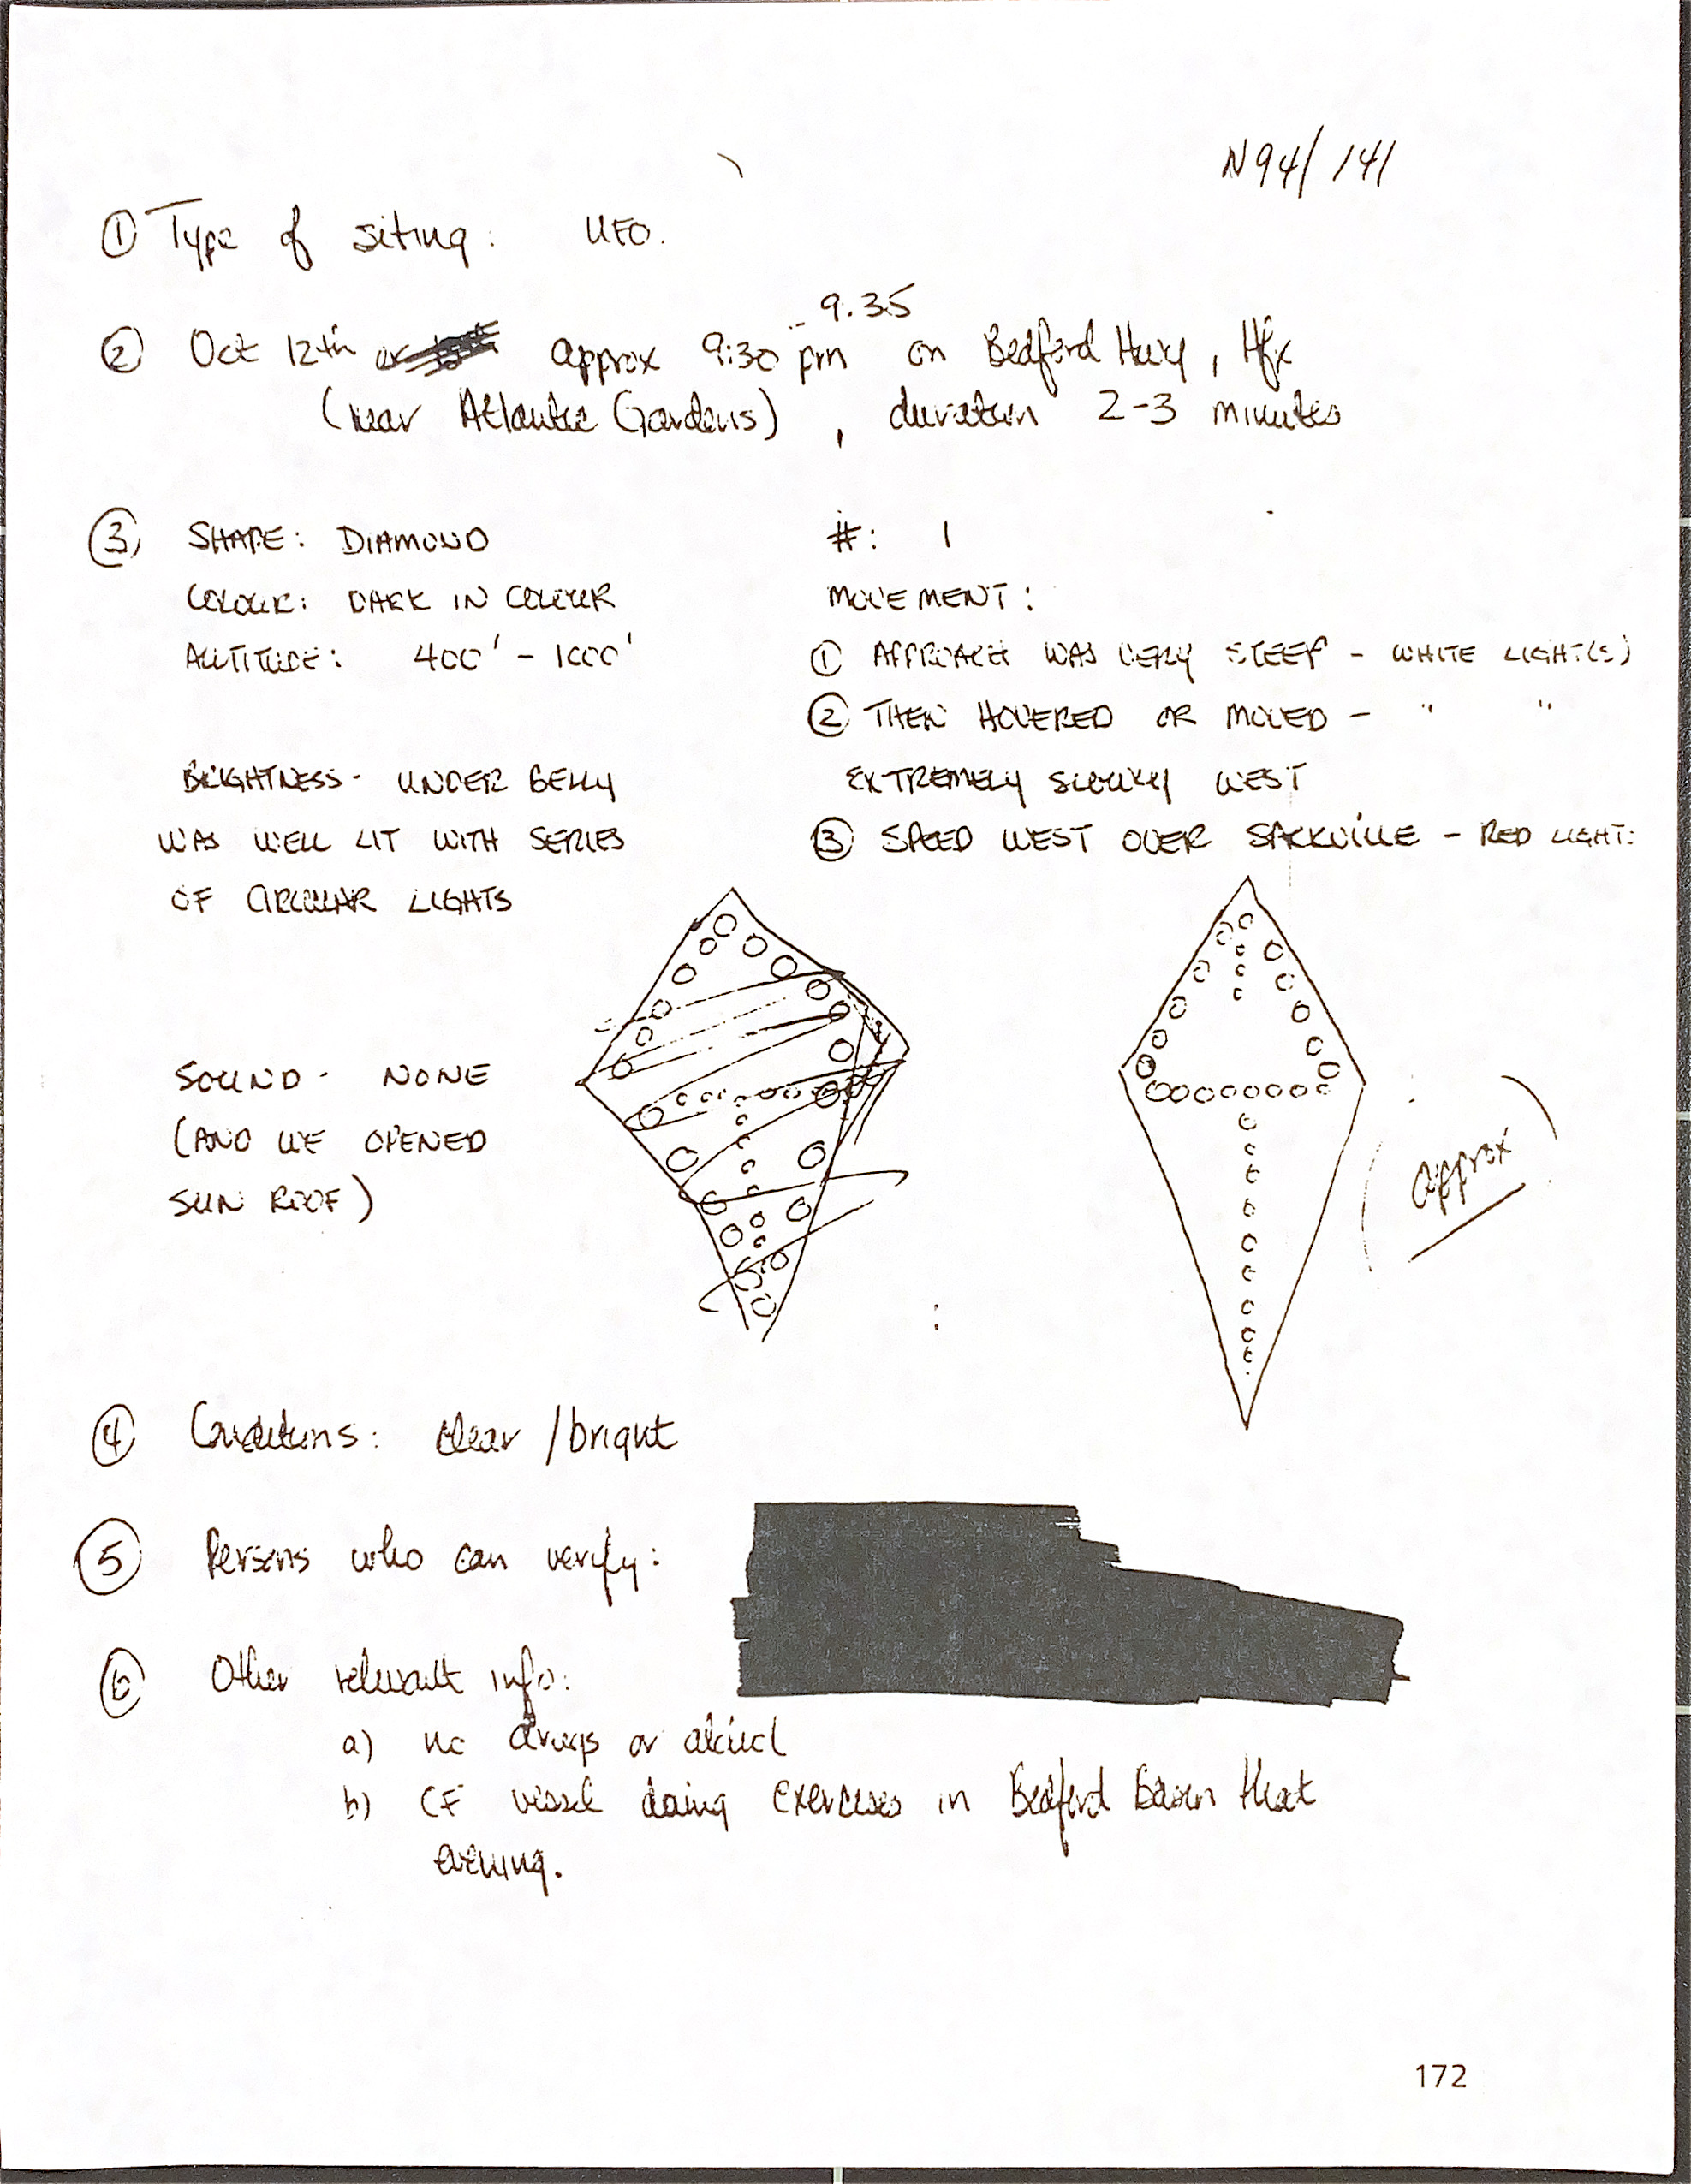 N94/141
① Type of siting: UFO.
- 9.35
② Oct 12th or approx 9:30 pm on Bedford Hwy, Hfx
(near Atlantic Gardens), duration 2-3 minutes
③ SHAPE: DIAMOND
COLOUR: DARK IN COLOUR
ALTITUDE: 400' - 1000'
BRIGHTNESS- UNDER BELLY
WAS WELL LIT WITH SERIES
OF CIRCULAR LIGHTS
SOUND- NONE
(AND WE OPENED
SUN ROOF)
#: 1
MOVEMENT:
① APPROACH WAS VERY STEEP - WHITE LIGHT(S)
② THEN HOVERED OR MOVED - " "
EXTREMELY SLOWLY WEST
③ SPEED WEST OVER SACKVILLE - RED LIGHT:
(approx)
④ Conditions: clear/bright
⑤ Persons who can verify:
⑥ Other relevant info:
a) no drugs or alcohol
b) CF vessel doing exercises in Bedford Basin that
evening.
172